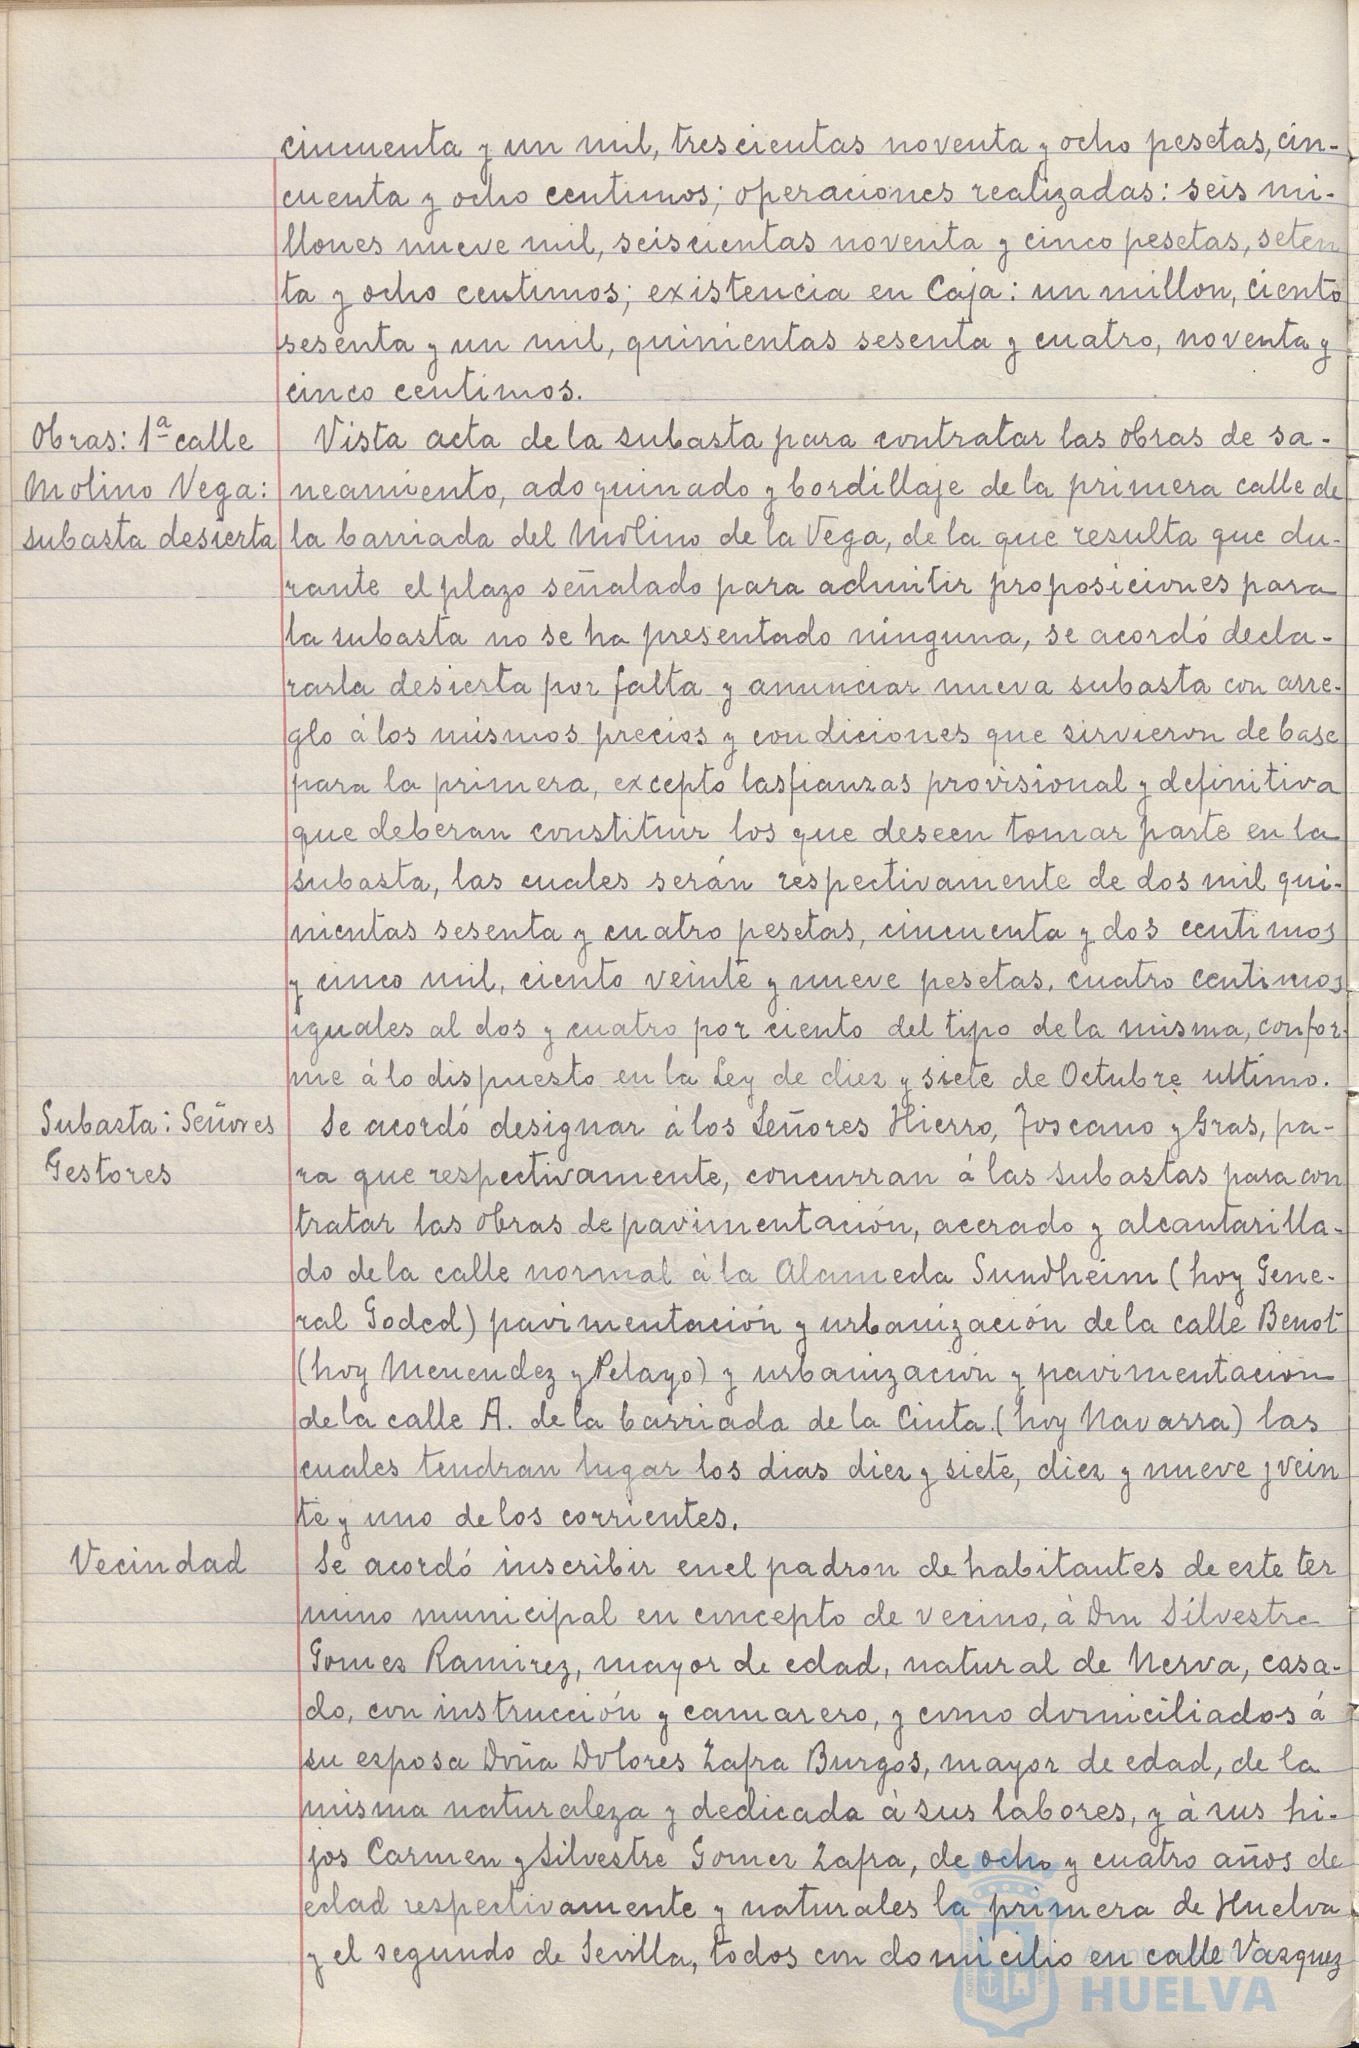 cincuenta y un mil, trescientas noventa y ocho pesetas, cin-
cuenta y ocho centimos; operaciones realizadas: seis mi-
llones nueve mil, seiscientas noventa y cinco pesetas, seten
ta y ocho centimos; existencia en Caja: un millon, ciento
sesenta y un mil, quinientas sesenta y cuatro, noventa y
cinco centimos.
Obras: 1ª calle
Molino Vega:
subasta desierta
Vista acta de la subasta para contratar las obras de sa-
neamiento, adoquinado y bordillaje de la primera calle de
la barriada del Molino de la Vega, de la que resulta que du-
rante el plazo señalado para admitir proposiciones para
la subasta no se ha presentado ninguna, se acordó decla-
rarla desierta por falta y anunciar nueva subasta con arre-
glo á los mismos precios y condiciones que sirvieron de base
para la primera, excepto las fianzas provisional y definitiva
que deberan constituir los que deseen tomar parte en la
subasta, las cuales serán respectivamente de dos mil qui-
nientas sesenta y cuatro pesetas, cincuenta y dos centimos
y cinco mil, ciento veinte y nueve pesetas, cuatro centimos
iguales al dos y cuatro por ciento del tipo de la misma, confor-
me á lo dispuesto en la Ley de diez y siete de Octubre ultimo.
Subasta: Señores
Gestores
Se acordó designar á los Señores Hierro, Toscano y Gras, pa-
ra que respectivamente, concurran á las subastas para con
tratar las obras de pavimentación, acerado y alcantarilla-
do de la calle normal à la Alameda Sundheim (hoy Gene-
ral Goded) pavimentación y urbanización de la calle Benot
(hoy Menendez y Pelayo) y urbanización y pavimentacion
de la calle A. de la barriada de la Cinta (hoy Navarra) las
cuales tendran lugar los dias diez y siete, diez y nueve y vein
te y uno de los corrientes.
Vecindad
Se acordó inscribir en el padron de habitantes de este ter
mino municipal en concepto de vecino, à Don Silvestre
Gomez Ramirez, mayor de edad, natural de Nerva, casa-
do, con instrucción y camarero, y como domiciliados á
su esposa Doña Dolores Zafra Burgos, mayor de edad, de la
misma naturaleza y dedicada à sus labores, y à sus hi-
jos Carmen y Silvestre Gomez Zafra, de ocho y cuatro años de
edad respectivamente y naturales la primera de Huelva
y el segundo de Sevilla, todos con domicilio en calle Vazquez
HUELVA